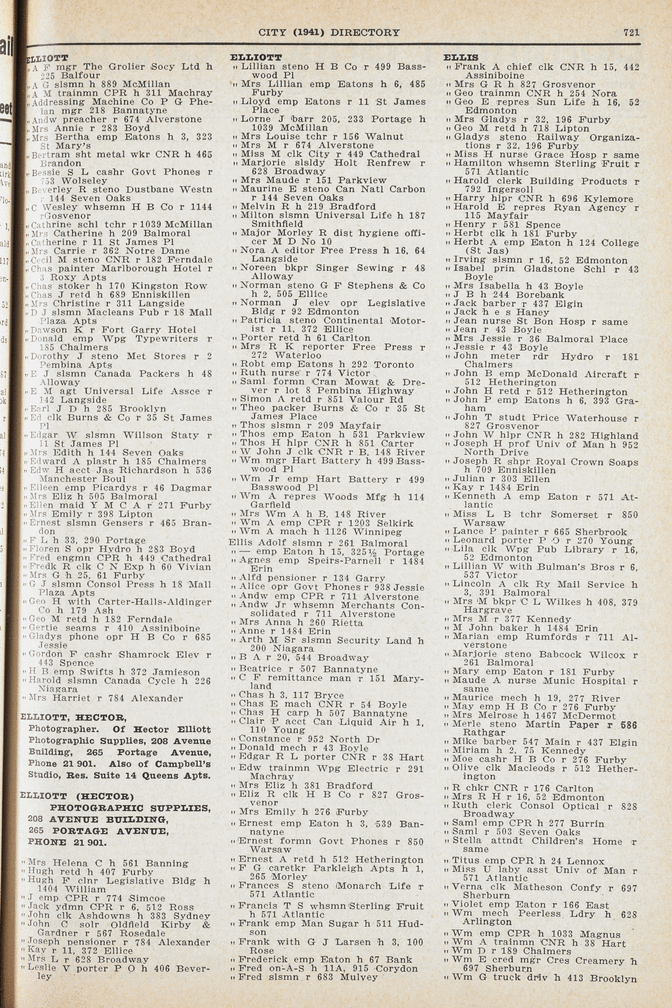 CITY (1941) DIRECTORY 721
ELLIOTT
" A F mgr The Grolier Socy Ltd h
225 Balfour
" A G slsmn h 889 McMillan
" A M trainmn CPR h 311 Machray
" Addressing Machine Co P G Phe-
lan mgr 218 Bannatyne
" Andw preacher r 674 Alverstone
" Mrs Annie r 283 Boyd
" Mrs Bertha emp Eatons h 3, 323
St Mary's
" Bertram sht metal wkr CNR h 465
Brandon
" Bessie S L cashr Govt Phones r
753 Wolseley
" Beverley R steno Dustbane Westn
r 144 Seven Oaks
" C Wesley whsemn H B Co r 1144
Grosvenor
" Cathrine schl tchr r 1039 McMillan
" Mrs Catherine h 209 Balmoral
" Catherine r 11 St James Pl
" Mrs Carrie r 262 Notre Dame
" Cecil M steno CNR r 182 Ferndale
" Chas painter Marlborough Hotel r
3 Roxy Apts
" Chas stoker h 170 Kingston Row
" Chas J retd h 689 Enniskillen
" Mrs Christine r 311 Langside
" D J slsmn Macleans Pub r 18 Mall
Plaza Apts
" Dawson K r Fort Garry Hotel
" Donald emp Wpg Typewriters r
185 Chalmers
" Dorothy J steno Met Stores r 2
Pembina Apts
" E J slsmn Canada Packers h 48
Alloway
" E M agt Universal Life Assce r
142 Langside
" Earl J D h 285 Brooklyn
" Ed clk Burns & Co r 35 St James
Pl
" Edgar W slsmn Willson Staty r
11 St James Pl
" Mrs Edith h 144 Seven Oaks
" Edward A plastr h 185 Chalmers
" Edw H acct Jas Richardson h 536
Manchester Boul
" Eileen emp Picardys r 46 Dundas
" Mrs Eliz h 505 Balmoral
" Ellen maid Y M C A r 271 Furby
" Mrs Emily r 398 Lipton
" Ernest slsmn Gensers r 465 Bran-
don
" F L h 33, 290 Portage
" Floren S opr Hydro h 283 Boyd
" Fred engmn CPR h 449 Cathedral
" Fredk R clk C N Exp h 60 Vivian
" Mrs G h 25, 61 Furby
" G J slsmn Consol Press h 18 Mall
Plaza Apts
" Geo H with Carter-Halls-Aldinger
Co h 179 Ash
" Geo M retd h 182 Ferndale
" Gertie seams r 410 Assiniboine
" Gladys phone opr H B Co r 685
Jessie
" Gordon F cashr Shamrock Elev r
443 Spence
" H B emp Swifts h 372 Jamieson
" Harold slsmn Canada Cycle h 226
Niagara
" Mrs Harriet r 784 Alexander
ELLIOTT, HECTOR,
Photographer. Of Hector Elliott
Photographic Supplies, 208 Avenue
Building, 265 Portage Avenue,
Phone 21 901. Also of Campbell's
Studio, Res. Suite 14 Queens Apts.
ELLIOTT (HECTOR)
PHOTOGRAPHIC SUPPLIES,
208 AVENUE BUILDING,
265 PORTAGE AVENUE,
PHONE 21 901.
" Mrs Helena C h 561 Banning
" Hugh retd h 407 Furby
" Hugh F clnr Legislative Bldg h
1404 William
" J emp CPR r 774 Simcoe
" Jack ydmn CPR r 6, 512 Ross
" John clk Ashdowns h 383 Sydney
" John C solr Oldfield Kirby &
Gardner r 567 Rosedale
" Joseph pensioner r 784 Alexander
" Kay r 11, 372 Ellice
" Mrs L r 628 Broadway
" Leslie V porter P O h 406 Bever-
ley
ELLIOTT
" Lillian steno H B Co r 499 Bass-
wood Pl
" Mrs Lillian emp Eatons h 6, 485
Furby
" Lloyd emp Eatons r 11 St James
Place
" Lorne J barr 205, 233 Portage h
1039 McMillan
" Mrs Louise tchr r 156 Walnut
" Mrs M r 674 Alverstone
" Miss M clk City r 449 Cathedral
" Marjorie slsldy Holt Renfrew r
628 Broadway
" Mrs Maude r 151 Parkview
" Maurine E steno Can Natl Carbon
r 144 Seven Oaks
" Melvin R h 219 Bradford
" Milton slsmn Universal Life h 187
Smithfield
" Major Morley R dist hygiene offi-
cer M D No 10
" Nora A editor Free Press h 16, 64
Langside
" Noreen bkpr Singer Sewing r 48
Alloway
" Norman steno G F Stephens & Co
h 2, 505 Ellice
" Norman J elev opr Legislative
Bldg r 92 Edmonton
" Patricia steno Continental Motor-
ist r 11, 372 Ellice
" Porter retd h 61 Carlton
" Mrs R K reporter Free Press r
272 Waterloo
" Robt emp Eatons h 292 Toronto
" Ruth nurse r 774 Victor
" Saml formn Cran Mowat & Dre-
ver r lot 8 Pembina Highway
" Simon A retd r 851 Valour Rd
" Theo packer Burns & Co r 35 St
James Place
" Thos slsmn r 209 Mayfair
" Thos emp Eaton h 531 Parkview
" Thos H hlpr CNR h 851 Carter
" W John J clk CNR r B, 148 River
" Wm mgr Hart Battery h 499 Bass-
wood Pl
" Wm Jr emp Hart Battery r 499
Basswood Pl
" Wm A repres Woods Mfg h 114
Garfield
" Mrs Wm A h B, 148 River
" Wm A emp CPR r 1203 Selkirk
" Wm A mach h 1126 Winnipeg
Ellis Adolf slsmn r 261 Balmoral
" — emp Eaton h 15, 325½ Portage
" Agnes emp Speirs-Parnell r 1484
Erin
" Alfd pensioner r 134 Garry
" Alice opr Govt Phones r 938 Jessie
" Andw emp CPR r 711 Alverstone
" Andw Jr whsemn Merchants Con-
solidated r 711 Alverstone
" Mrs Anna h 260 Rietta
" Anne r 1484 Erin
" Arth M Sr slsmn Security Land h
200 Niagara
" B A r 20, 544 Broadway
" Beatrice r 507 Bannatyne
" C F remittance man r 151 Mary-
land
" Chas h 3, 117 Bryce
" Chas E mach CNR r 54 Boyle
" Chas H carp h 507 Bannatyne
" Clair P acct Can Liquid Air h 1,
110 Young
" Constance r 952 North Dr
" Donald mech r 43 Boyle
" Edgar R L porter CNR r 38 Hart
" Edw trainmn Wpg Electric r 291
Machray
" Mrs Eliz h 381 Bradford
" Eliz R clk H B Co r 827 Gros-
venor
" Mrs Emily h 276 Furby
" Ernest emp Eaton h 3, 539 Ban-
natyne
" Ernest formn Govt Phones r 850
Warsaw
" Ernest A retd h 512 Hetherington
" F G caretkr Parkleigh Apts h 1,
265 Morley
" Frances S steno Monarch Life r
571 Atlantic
" Francis T S whsmn Sterling Fruit
h 571 Atlantic
" Frank emp Man Sugar h 511 Hud-
son
" Frank with G J Larsen h 3, 100
Rose
" Frederick emp Eaton h 67 Bank
" Fred on-A-S h 11A, 915 Corydon
" Fred slsmn r 683 Mulvey
ELLIS
" Frank A chief clk CNR h 15, 442
Assiniboine
" Mrs G R h 827 Grosvenor
" Geo trainmn CNR h 254 Nora
" Geo E repres Sun Life h 16, 52
Edmonton
" Mrs Gladys r 32, 196 Furby
" Geo M retd h 718 Lipton
" Gladys steno Railway Organiza-
tions r 32, 196 Furby
" Miss H nurse Grace Hosp r same
" Hamilton whsemn Sterling Fruit r
571 Atlantic
" Harold clerk Building Products r
792 Ingersoll
" Harry hlpr CNR h 696 Kylemore
" Harold E repres Ryan Agency r
115 Mayfair
" Henry r 581 Spence
" Herbt clk h 181 Furby
" Herbt A emp Eaton h 124 College
(St Jas)
" Irving slsmn r 16, 52 Edmonton
" Isabel prin Gladstone Schl r 43
Boyle
" Mrs Isabella h 43 Boyle
" J B h 244 Borebank
" Jack barber r 437 Elgin
" Jack h e s Haney
" Jean nurse St Bon Hosp r same
" Jean r 43 Boyle
" Mrs Jessie r 36 Balmoral Place
" Jessie r 43 Boyle
" John meter rdr Hydro r 181
Chalmers
" John B emp McDonald Aircraft r
512 Hetherington
" John H retd r 512 Hetherington
" John P emp Eatons h 6, 393 Gra-
ham
" John T studt Price Waterhouse r
827 Grosvenor
" John W hlpr CNR h 282 Highland
" Joseph H prof Univ of Man h 952
North Drive
" Joseph R shpr Royal Crown Soaps
h 709 Enniskillen
" Julian r 303 Ellen
" Kay r 1484 Erin
" Kenneth A emp Eaton r 571 At-
lantic
" Miss L B tchr Somerset r 850
Warsaw
" Lance P painter r 665 Sherbrook
" Leonard porter P O r 270 Young
" Lila clk Wpg Pub Library r 16,
52 Edmonton
" Lillian W with Bulman's Bros r 6,
537 Victor
" Lincoln A clk Ry Mail Service h
3, 391 Balmoral
" Mrs M bkpr C L Wilkes h 408, 379
Hargrave
" Mrs M r 377 Kennedy
" M John baker h 1484 Erin
" Marian emp Rumfords r 711 Al-
verstone
" Marjorie steno Babcock Wilcox r
261 Balmoral
" Mary emp Eaton r 181 Furby
" Maude A nurse Munic Hospital r
same
" Maurice mech h 19, 277 River
" May emp H B Co r 276 Furby
" Mrs Melrose h 1467 McDermot
" Merle steno Martin Paper r 586
Rathgar
" Mike barber 547 Main r 437 Elgin
" Miriam h 2, 75 Kennedy
" Moe cashr H B Co r 276 Furby
" Olive clk Macleods r 512 Hether-
ington
" R chkr CNR r 176 Carlton
" Mrs R H r 16, 52 Edmonton
" Ruth clerk Consol Optical r 828
Broadway
" Saml emp CPR h 277 Burrin
" Saml r 503 Seven Oaks
" Stella attndt Children's Home r
same
" Titus emp CPR h 24 Lennox
" Miss U laby asst Univ of Man r
571 Atlantic
" Verna clk Matheson Confy r 697
Sherburn
" Violet emp Eaton r 166 East
" Wm mech Peerless Ldry h 628
Arlington
" Wm emp CPR h 1033 Magnus
" Wm A trainmn CNR h 38 Hart
" Wm D r 189 Chalmers
" Wm E cred mgr Cres Creamery h
697 Sherburn
" Wm G truck driv h 413 Brooklyn